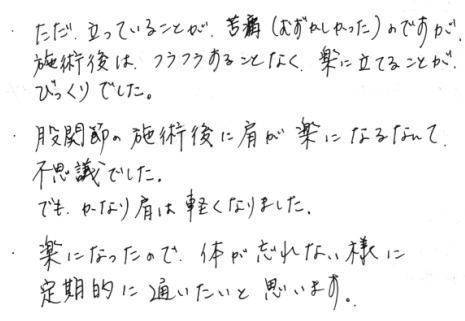 ・ただ、立っていることが、苦痛(むずかしかった)のですが、
施術後は、フラフラすることなく、楽に立てることが、
びっくりでした。
・股関節の施術後に肩が楽になるなんて、
不思議でした。
でも、かなり肩は軽くなりました。
・楽になったので、体が忘れない様に
定期的に通いたいと思います。